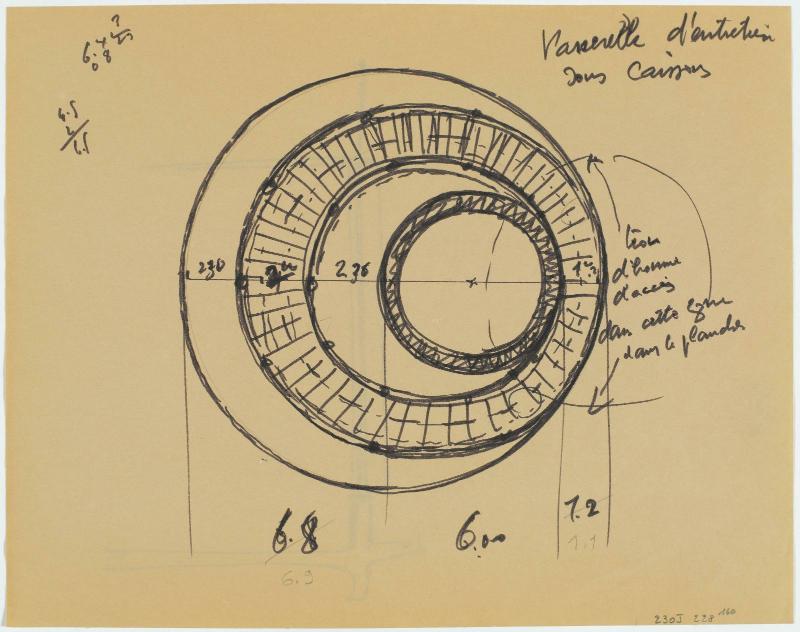 Passerelle d'entretien
sous Caissons
230
236
trou
d'homme
d'accès
dans cette zone
dans le plancher
6.8
6.9
6.00
1.2
1.1
230J 228 160